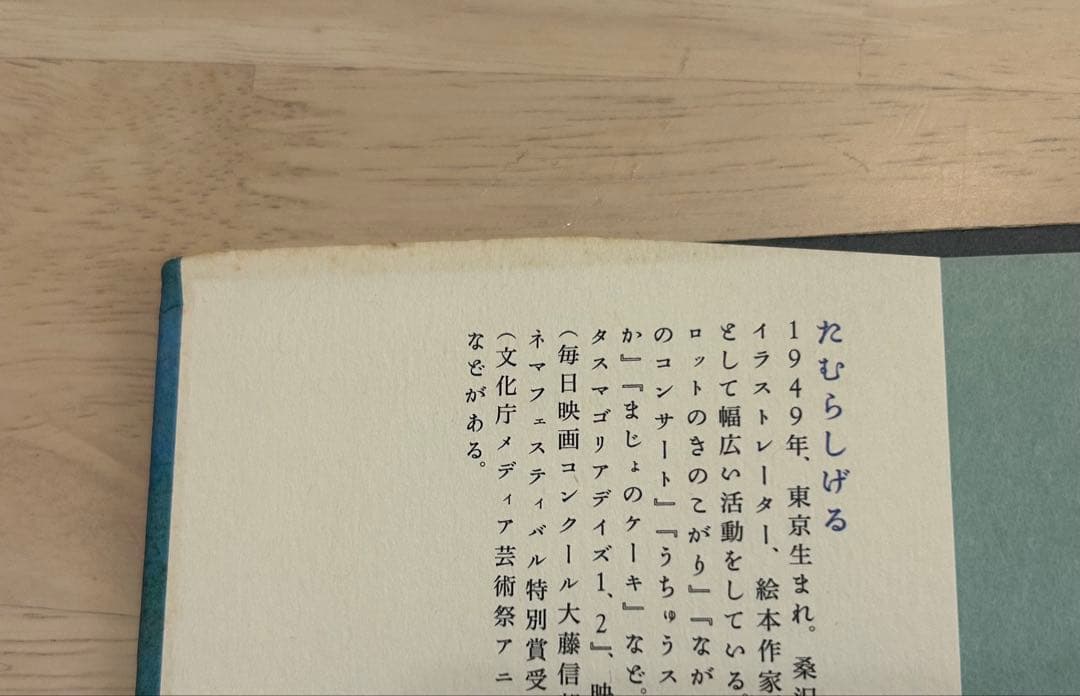 たむらしげる
1949年、東京生まれ。桑沢
イラストレーター、絵本作家
として幅広い活動をしている。
ロットのきのこがり』『なが
のコンサート』『うちゅうス
か』『まじょのケーキ』など。
タスマゴリアデイズ1、2』、映
（毎日映画コンクール大藤信郎
ネマフェスティバル特別賞受
（文化庁メディア芸術祭アニ
などがある。